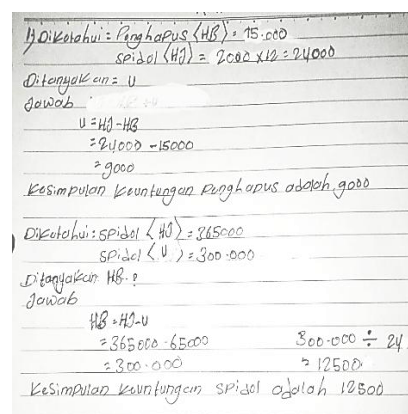 1) Diketahui: Penghapus (HB) = 15.000
spidol (HJ) = 2000 x 12 = 24000
Ditanyakan = U
Jawab
U = HJ - HB
= 24000 - 15000
= 9000
Kesimpulan keuntungan penghapus adalah 9000
) Diketahui: spidol (HJ) = 365000
spidol (U) = 300.000
Ditanyakan HB.?
Jawab
HB = HJ - U
= 365000 - 65000 300.000 ÷ 24
= 300.000 = 12500
Kesimpulan keuntungan spidol adalah 12500